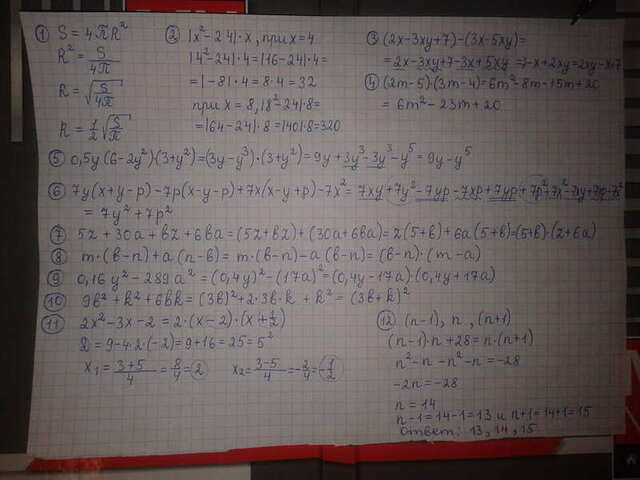 ① S = 4πR²
R² = S/4π
R = √(S/4π)
R = 1/2 √(S/π)
② |x² - 24| · x, при x = 4
|4² - 24| · 4 = |16 - 24| · 4 =
= |-8| · 4 = 8 · 4 = 32
при x = 8, |8² - 24| · 8 =
= |64 - 24| · 8 = |40| · 8 = 320
③ (2x - 3xy + 7) - (3x - 5xy) =
= 2x - 3xy + 7 - 3x + 5xy = -x + 2xy = 2xy - x + 7
④ (2m - 5)·(3m - 4) = 6m² - 8m - 15m + 20
= 6m² - 23m + 20
⑤ 0,5y (6 - 2y²)·(3 + y²) = (3y - y³)·(3 + y²) = 9y + 3y³ - 3y³ - y⁵ = 9y - y⁵
⑥ 7y(x + y - p) - 7p(x - y - p) + 7x(x - y + p) - 7x² = 7xy + 7y² - 7yp - 7xp + 7yp + 7p² + 7x² - 7xy + 7xp - 7x²
= 7y² + 7p²
⑦ 5z + 30a + bz + 6ba = (5z + bz) + (30a + 6ba) = z(5 + b) + 6a(5 + b) = (5+b)·(z + 6a)
⑧ m·(b - n) + a(n - b) = m·(b - n) - a(b - n) = (b - n)·(m - a)
⑨ 0,16y² - 289a² = (0,4y)² - (17a)² = (0,4y - 17a)·(0,4y + 17a)
⑩ 9b² + k² + 6bk = (3b)² + 2·3b·k + k² = (3b + k)²
⑪ 2x² - 3x - 2 = 2·(x - 2)·(x + 1/2)
D = 9 - 4·2·(-2) = 9 + 16 = 25 = 5²
x₁ = (3+5)/4 = 8/4 = 2 x₂ = (3-5)/4 = -2/4 = -1/2
⑫ (n-1), n, (n+1)
(n-1)·n + 28 = n·(n+1)
n² - n - n² - n = -28
-2n = -28
n = 14
n - 1 = 14 - 1 = 13 и n+1 = 14+1 = 15
Ответ: 13, 14, 15